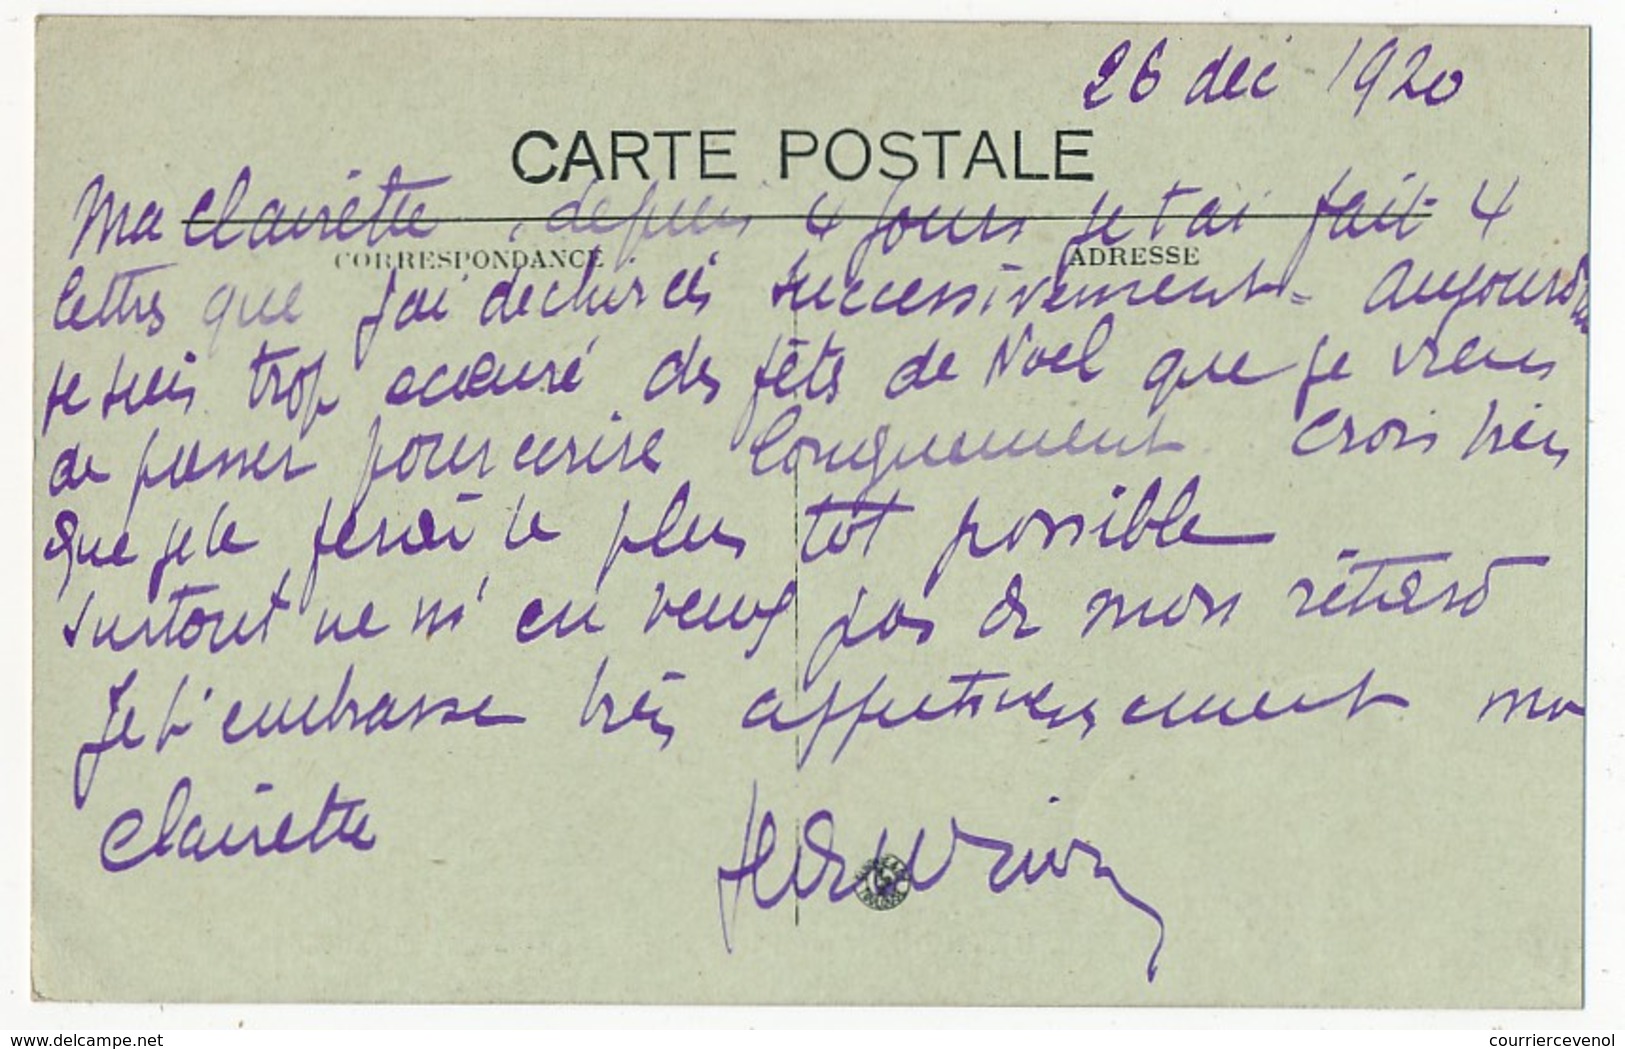 26 dec 1920
CARTE POSTALE
Ma Clairette, depuis 4 jours je t'ai fait 4
CORRESPONDANCE
ADRESSE
lettres que j'ai dechirées successivement - Aujourd'hui
je suis trop ecoeuré des fêtes de Noel que je viens
de passer pour ecrire longuement Crois bien
que je le ferai le plus tôt possible
surtout ne m'en veux pas de mon retard
Je t'embrasse très affectueusement ma
Clairette
www.delcampe.net
courriercevenol